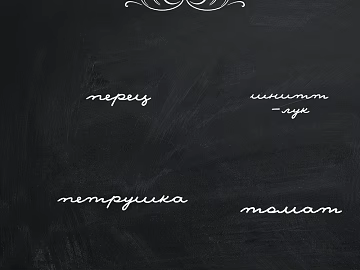 перец
шнитт
-лук
петрушка
томат